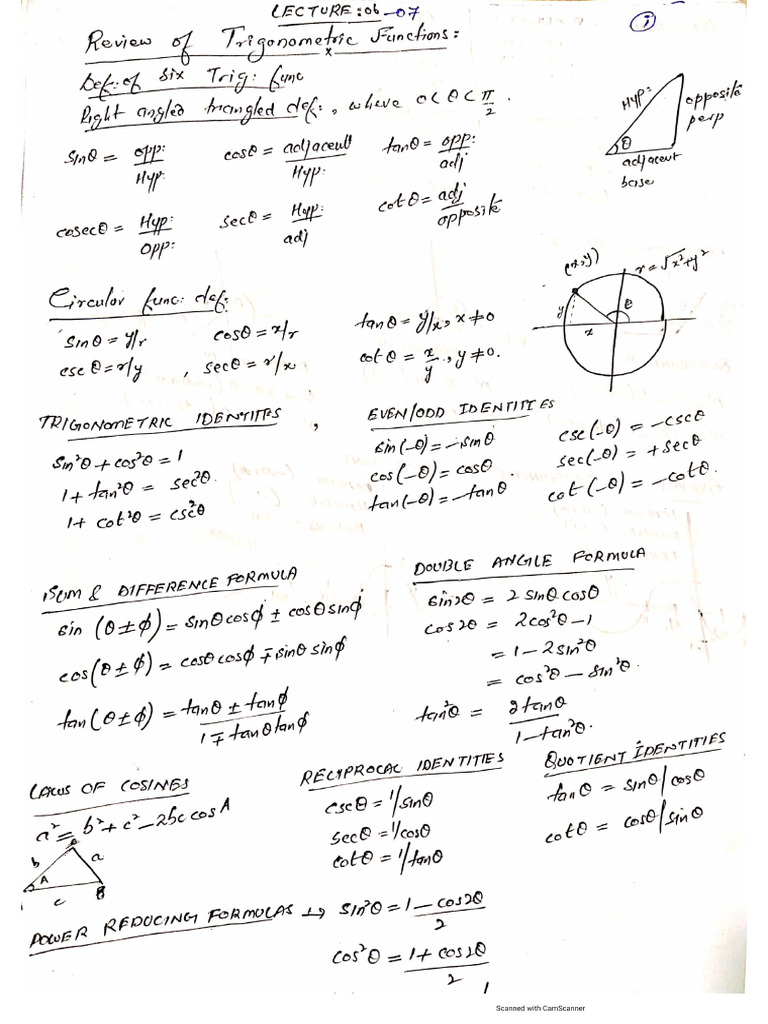 LECTURE: 06-07
①
Review of Trigonometric Functions:
Def: of six Trig: func
Right angled triangled def:, where 0<θ<π/2.
Hyp:
opposite
perp
θ
adjacent
base
sinθ = opp:/Hyp:
cosθ = adjacent/Hyp:
tanθ = opp:/adj
cosecθ = Hyp:/opp:
secθ = Hyp:/adj
cotθ = adj/opposite
Circular func: def:
(x,y)
r=√x²+y²
y
θ
x
sinθ = y/r
cosθ = x/r
tanθ = y/x, x≠0
cscθ = r/y , secθ = r/x
cotθ = x/y, y≠0.
TRIGONOMETRIC IDENTITIES ,
sin²θ + cos²θ = 1
1 + tan²θ = sec²θ.
1 + cot²θ = csc²θ
EVEN/ODD IDENTITIES
sin(-θ) = -sinθ
cos(-θ) = cosθ.
tan(-θ) = -tanθ
csc(-θ) = -cscθ
sec(-θ) = +secθ
cot(-θ) = -cotθ.
SUM & DIFFERENCE FORMULA
sin (θ±ϕ) = sinθcosϕ ± cosθsinϕ
cos(θ±ϕ) = cosθcosϕ ∓ sinθ sinϕ
tan(θ±ϕ) = tanθ ± tanϕ / 1∓tanθtanϕ
DOUBLE ANGLE FORMULA
sin2θ = 2 sinθcosθ
cos2θ = 2cos²θ-1
= 1-2sin²θ
= cos²θ - sin²θ.
tan²θ = 2tanθ / 1-tan²θ.
LAWS OF COSINES
a² = b²+c²-2bc cosA
b
a
A
B
c
RECIYPROCAL IDENTITIES
cscθ = 1/sinθ
secθ = 1/cosθ
cotθ = 1/tanθ
QUOTIENT IDENTITIES
tanθ = sinθ/cosθ
cotθ = cosθ/sinθ
POWER REDUCING FORMULAS ↦ sin²θ = 1-cos2θ / 2
cos²θ = 1+cos2θ / 2
Scanned with CamScanner